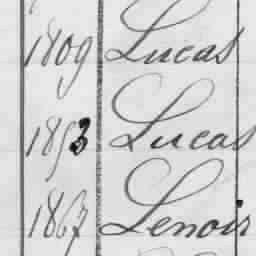 1809 Lucas
1853 Lucas
1867 Lenoir